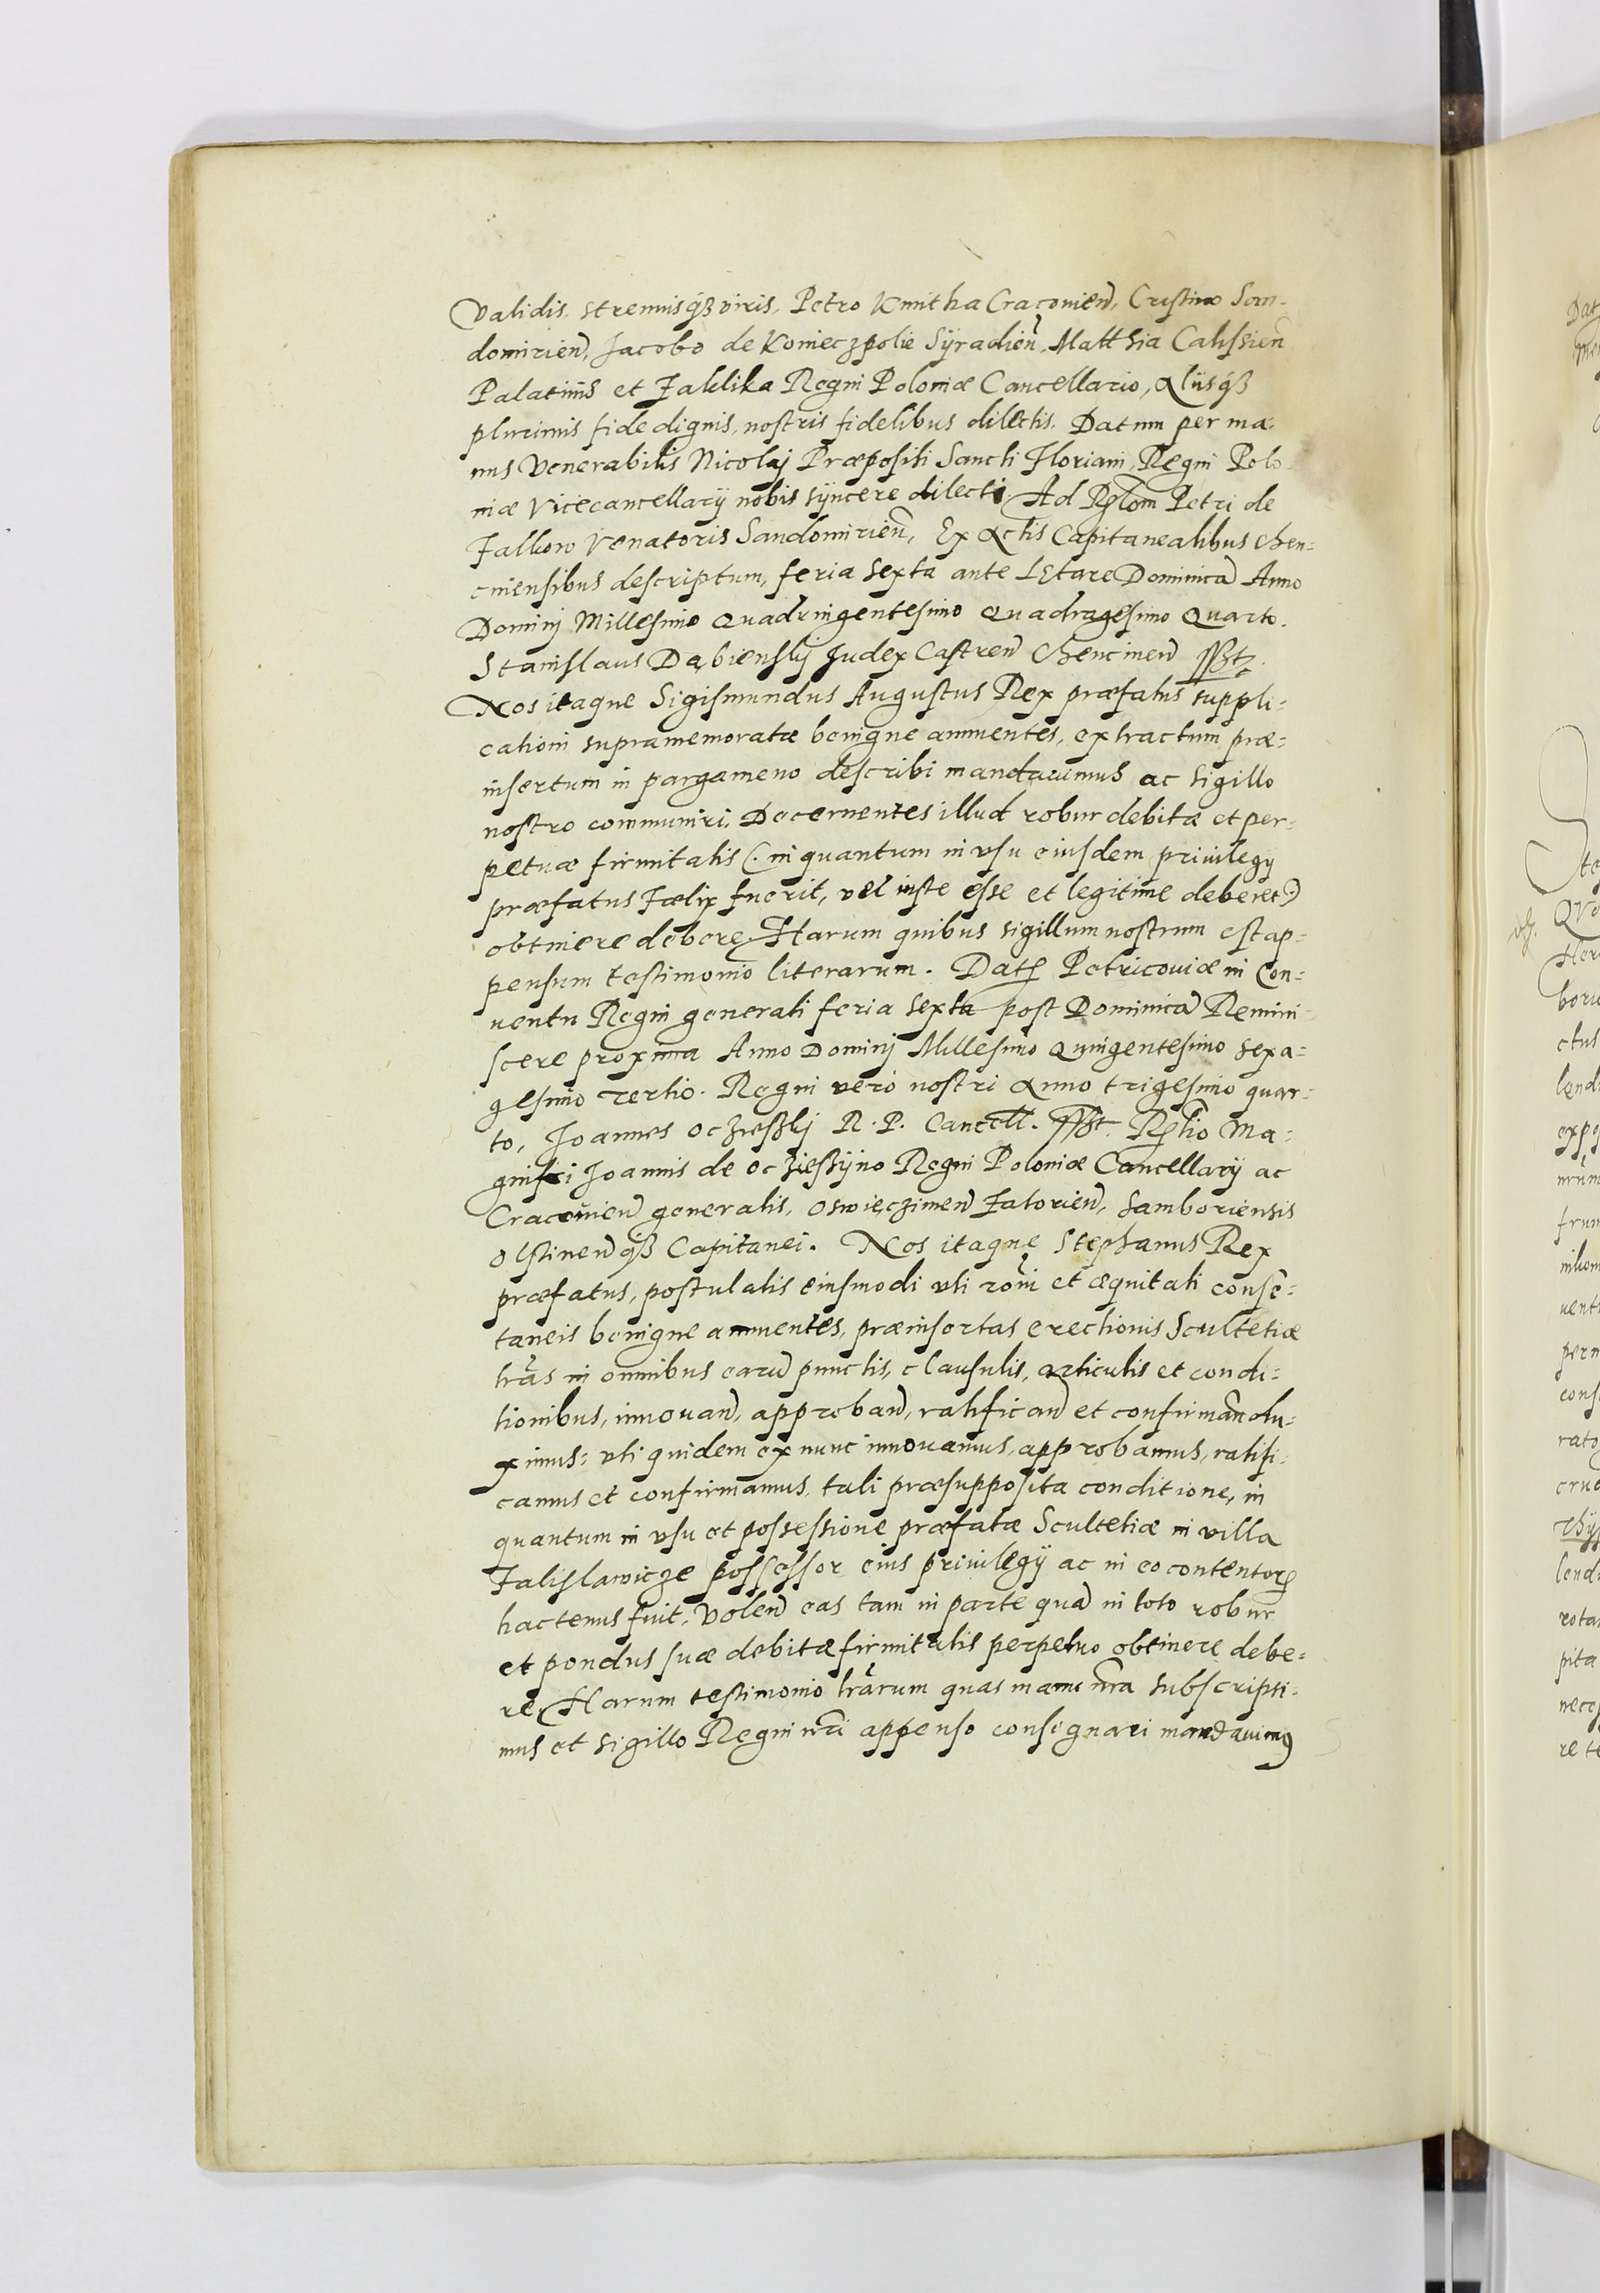 Validis, strenuisq́ꝫ viris, Petro Kmitha Cracovien̄, Cristino San-
domirien̄, Jacobo de Konieczpolie Syradien̄, Matthia Calissien̄
Palatinis et Jaklika Regni Poloniæ Cancellario, Aliisq́ꝫ
plurimis fide dignis, nostris fidelibus dilectis. Datum per ma-
nus Venerabilis Nicolaj Præpositi Sancti Floriani, Regni Polo-
niæ Vicecancellarij nobis syncere dilecti. Ad Rel̄om Petri de
Falkow Venatoris Sandomirien̄, Ex Actis Capitanealibus Chen-
cinensibus descriptum, feria sexta ante Letare Dominica Anno
Dominj Millesimo Quadringentesimo Quadragesimo Quarto.
Stanislaus Dąbienskj Judex Castren̄ Chencinen̄ sst.
Nos itaque Sigismundus Augustus Rex præfatus suppli-
cationi supramemoratæ benigne annuentes, extractum præ-
insertum in pargameno describi mandauimus ac sigillo
nostro communiri. Decernentes illud robur debitæ et per-
petuæ firmitatis (: in quantum in vsu eiusdem priuilegy
præfatus Fælix fuerit, vel iuste esse et legitime deberet :)
obtinere debere. Harum quibus sigillum nostrum est ap-
pensum testimonio literarum. Dat. Petricouiæ in Con-
uentu Regni generali feria sexta post Dominicā Remini-
scere proxima Anno Dominj Millesimo Quingentesimo sexa-
gesimo tertio. Regni vero nostri Anno trigesimo quar-
to, Joannes Oczieskj R. P. Cancell. sst. Rel̄io Ma-
gnifici Joannis de Oczieszyno Regni Poloniæ Cancellarij ac
Cracouien̄ generalis, Oswięczimen̄ Zatorien̄, Samboriensis
Olstinen̄ qꝫ Capitanei. Nos itaque Stephanus Rex
præfatus, postulatis eiusmodi vti rōni et æquitati consē-
taneis benigne annuentes, præinsertas erectionis Scultetiæ
lrās in omnibus earū punctis, clausulis, articulis et condi-
tionibus, innouan̄, approban̄, ratifican̄ et confirman̄ du-
ximus: vti quidem ex nunc innouamus, approbamus, ratifi-
camus et confirmamus, tali præsupposita conditione, in
quantum in vsu et possessione præfatæ Scultetiæ in villa
Falislawicze possessor eius priuilegij ac in eo contentor.
hactenus fuit. Volen̄ eas tam in parte quā in toto robur
et pondus suæ debitæ firmitatis perpetuo obtinere debe-
re. Harum testimonio lrārum quas manu nrā subscripsi-
mus et sigillo Regni nrī appenso consignari mandauimꝰ